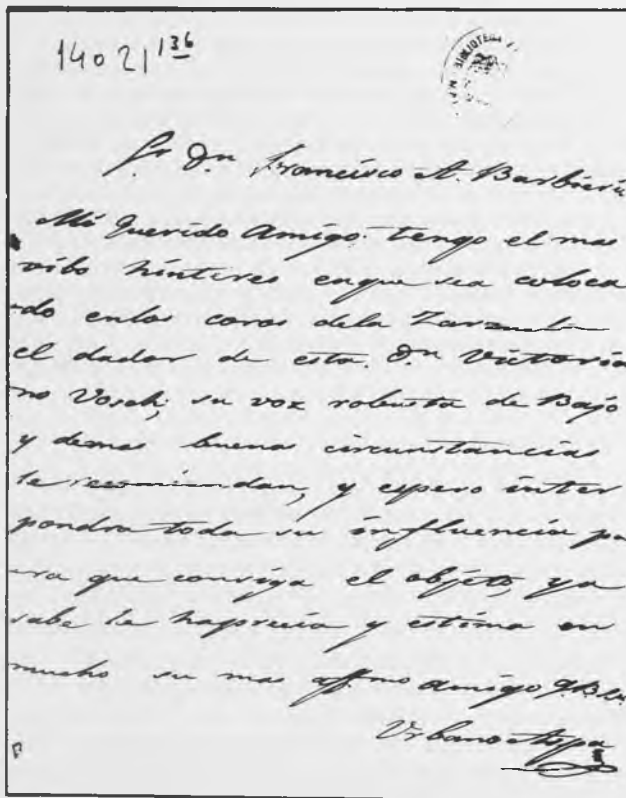 14021 136
BIBLIOTECA
Sr Dn Francisco A. Barbieri
Mi Querido Amigo: tengo el mas
vibo hinteres enque sea coloca
do enlos coros dela Zarzuela
el dador de esta. Dn Victoria
no Vosch; su vox robusta de Bajo
y demas buenas circunstancias
le recomiendan, y espero inter
pondra toda su influencia pa
ra que consiga el objeto, ya
sabe le haprecia y estima en
mucho su mas affmo amigo
Urbano Aspa